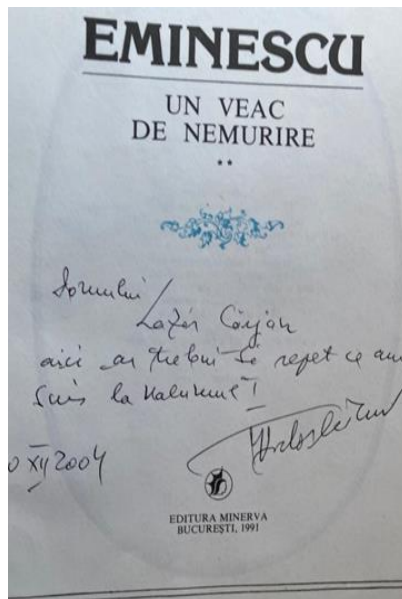 EMINESCU
UN VEAC
DE NEMURIRE
**
Domnului
Lazăr
aici ar trebui să repet ce am
scris la volumul I
0 XII 2004
EDITURA MINERVA
BUCUREȘTI, 1991